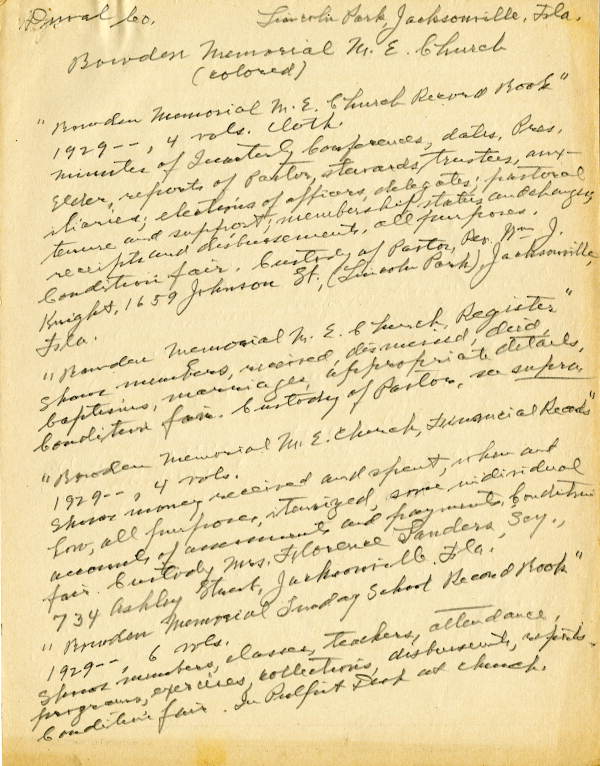 Duval Co. Lincoln Park, Jacksonville, Fla.
Bowden Memorial M. E. Church
(colored)
"Bowden Memorial M. E. Church Record Book"
1929--, 4 vols. Cloth.
Minutes of Quarterly Conferences, dates, Pres.
Elder, reports of Pastor, stewards, trustees, aux-
iliaries; elections of officers, delegates; pastoral
tenure and support; membership, status and changes
receipts and disbursements, all purposes.
Condition fair. Custody of Pastor, Rev. Wm J.
Knight, 1659 Johnson St., (Lincoln Park), Jacksonville,
Fla.
"Bowden Memorial M. E. Church, Register"
Shows members, received, dismissed, died,
baptisms, marriages, appropriate details,
Condition fair. Custody of Pastor, see supra
"Bowden Memorial M. E. Church, Financial Records"
1929--, 4 vols.
Shows money received and spent, when and
how, all purposes, itemized, some individual
accounts of assessments and payments. Condition
fair. Custody Mrs. Florence Sanders, Scy.,
734 Ashley Street, Jacksonville Fla.
"Bowden Memorial Sunday School Record Book"
1929--, 6 vols.
Shows members, classes, teachers, attendance,
programs, exercises, collections, disbursements, reports.
Condition fair. In Pulpit Desk at church.